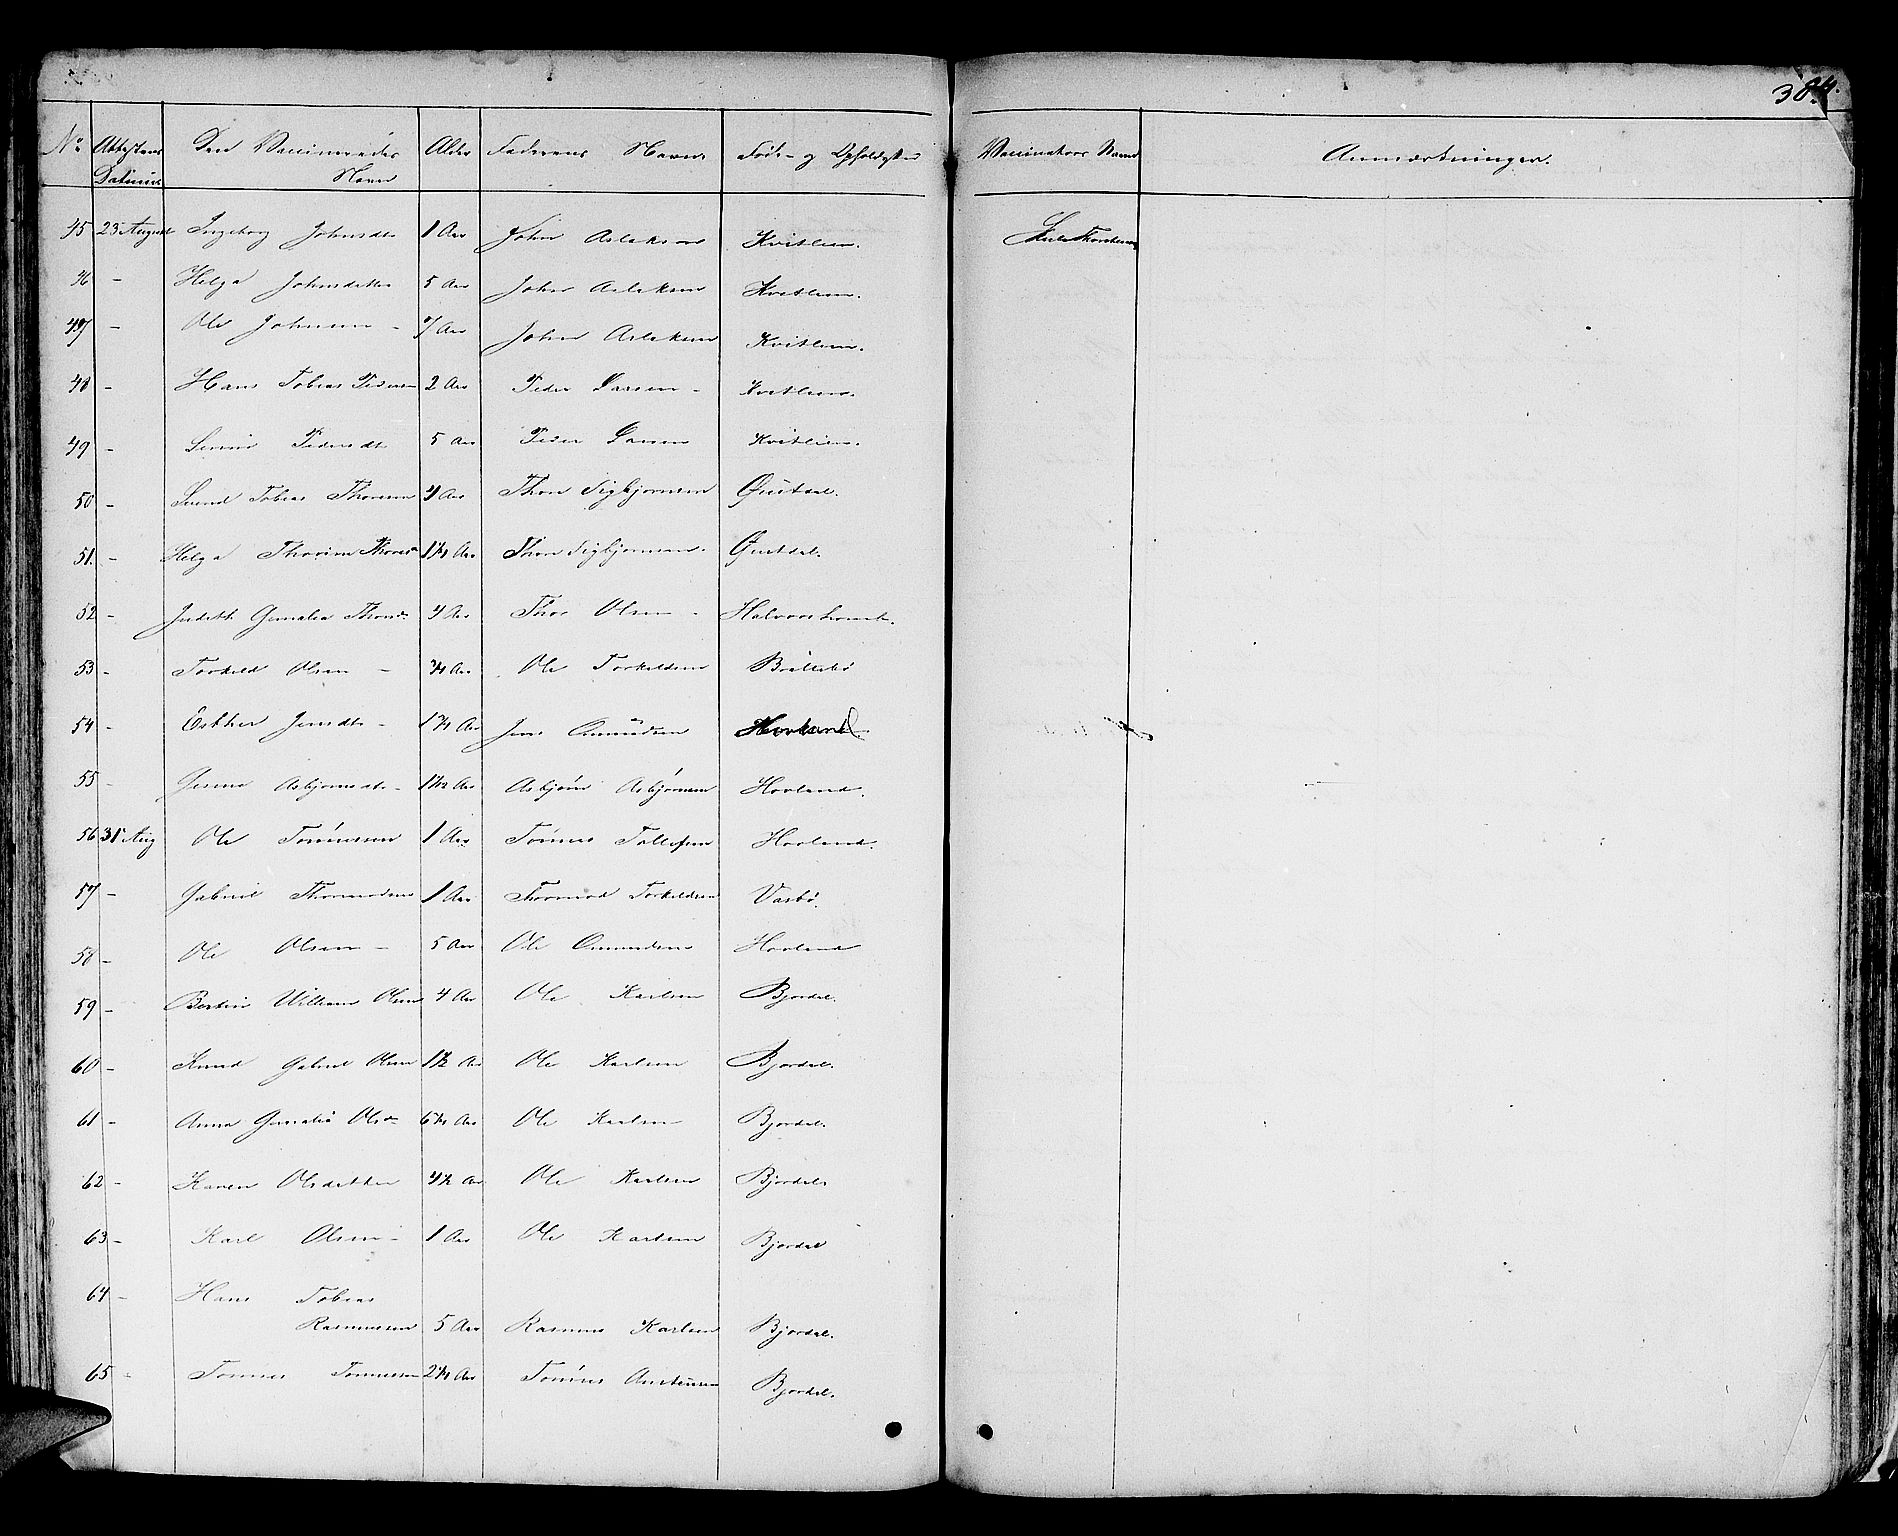 384.
No Attestens Datum Den Vaccineredes Navn Alder Faderens Navn Føde- og Opholdssted Vaccinators Navn Anmærkninger.
45 23 August Ingeborg Johnsdt 1 Aar John Aslaksen Kvitlien.
46 - Helga Johnsdatter 5 Aar John Aslaksen Kvitlien.
47 - Ole Johnsen - 7 Aar John Aslaksen Kvitlien.
48 - Hans Tobias Pedersen 2 Aar Peder Larsen - Kvitlien.
49 - Pedersdt 5 Aar Peder Larsen Kvitlien.
50 - Svend Tobias Thorsen 4 Aar Thor Sigbjørnsen
51. - Helga Thorine Thorsd Aar Thor Sigbjørnsen.
52 - Judith Thorsd 4 Aar Thor Olsen -
53 - Torkild Olsen - 3/4 Aar Ole Torkildsen
54 - Esther Jensdt - Aar Jens Omundsen Hovland.
55 - Gesine Asbjørnsdt - Aar Asbjørn Asbjørnsen Hovland.
56 31 Aug Ole Tønnessen 1 Aar Tønnes Tollefsen Hovland.
57 - Gabriel Thormodsen 1 Aar Thormod Torkildsen Vasbø.
58 - Ole Olsen - 5 Aar Ole Omundsen Hovland
59 - William Olsen 4 Aar Ole Karlsen Bjordal.
60 - Knud Gabriel Olsen 1 1/2 Aar Ole Karlsen Bjordal.
61 - Anna Olsd Aar Ole Karlsen Bjordal.
62 - Karen Olsdatter 4 1/2 Aar Ole Karlsen Bjordal
63 - Karl Olsen - 1 Aar Ole Karlsen Bjordal
64 - Hans Tobias
Rasmussen 5 Aar Rasmus Karlsen Bjordal.
65 - Tønnes Tønnessen Aar Tønnes Bjordal.